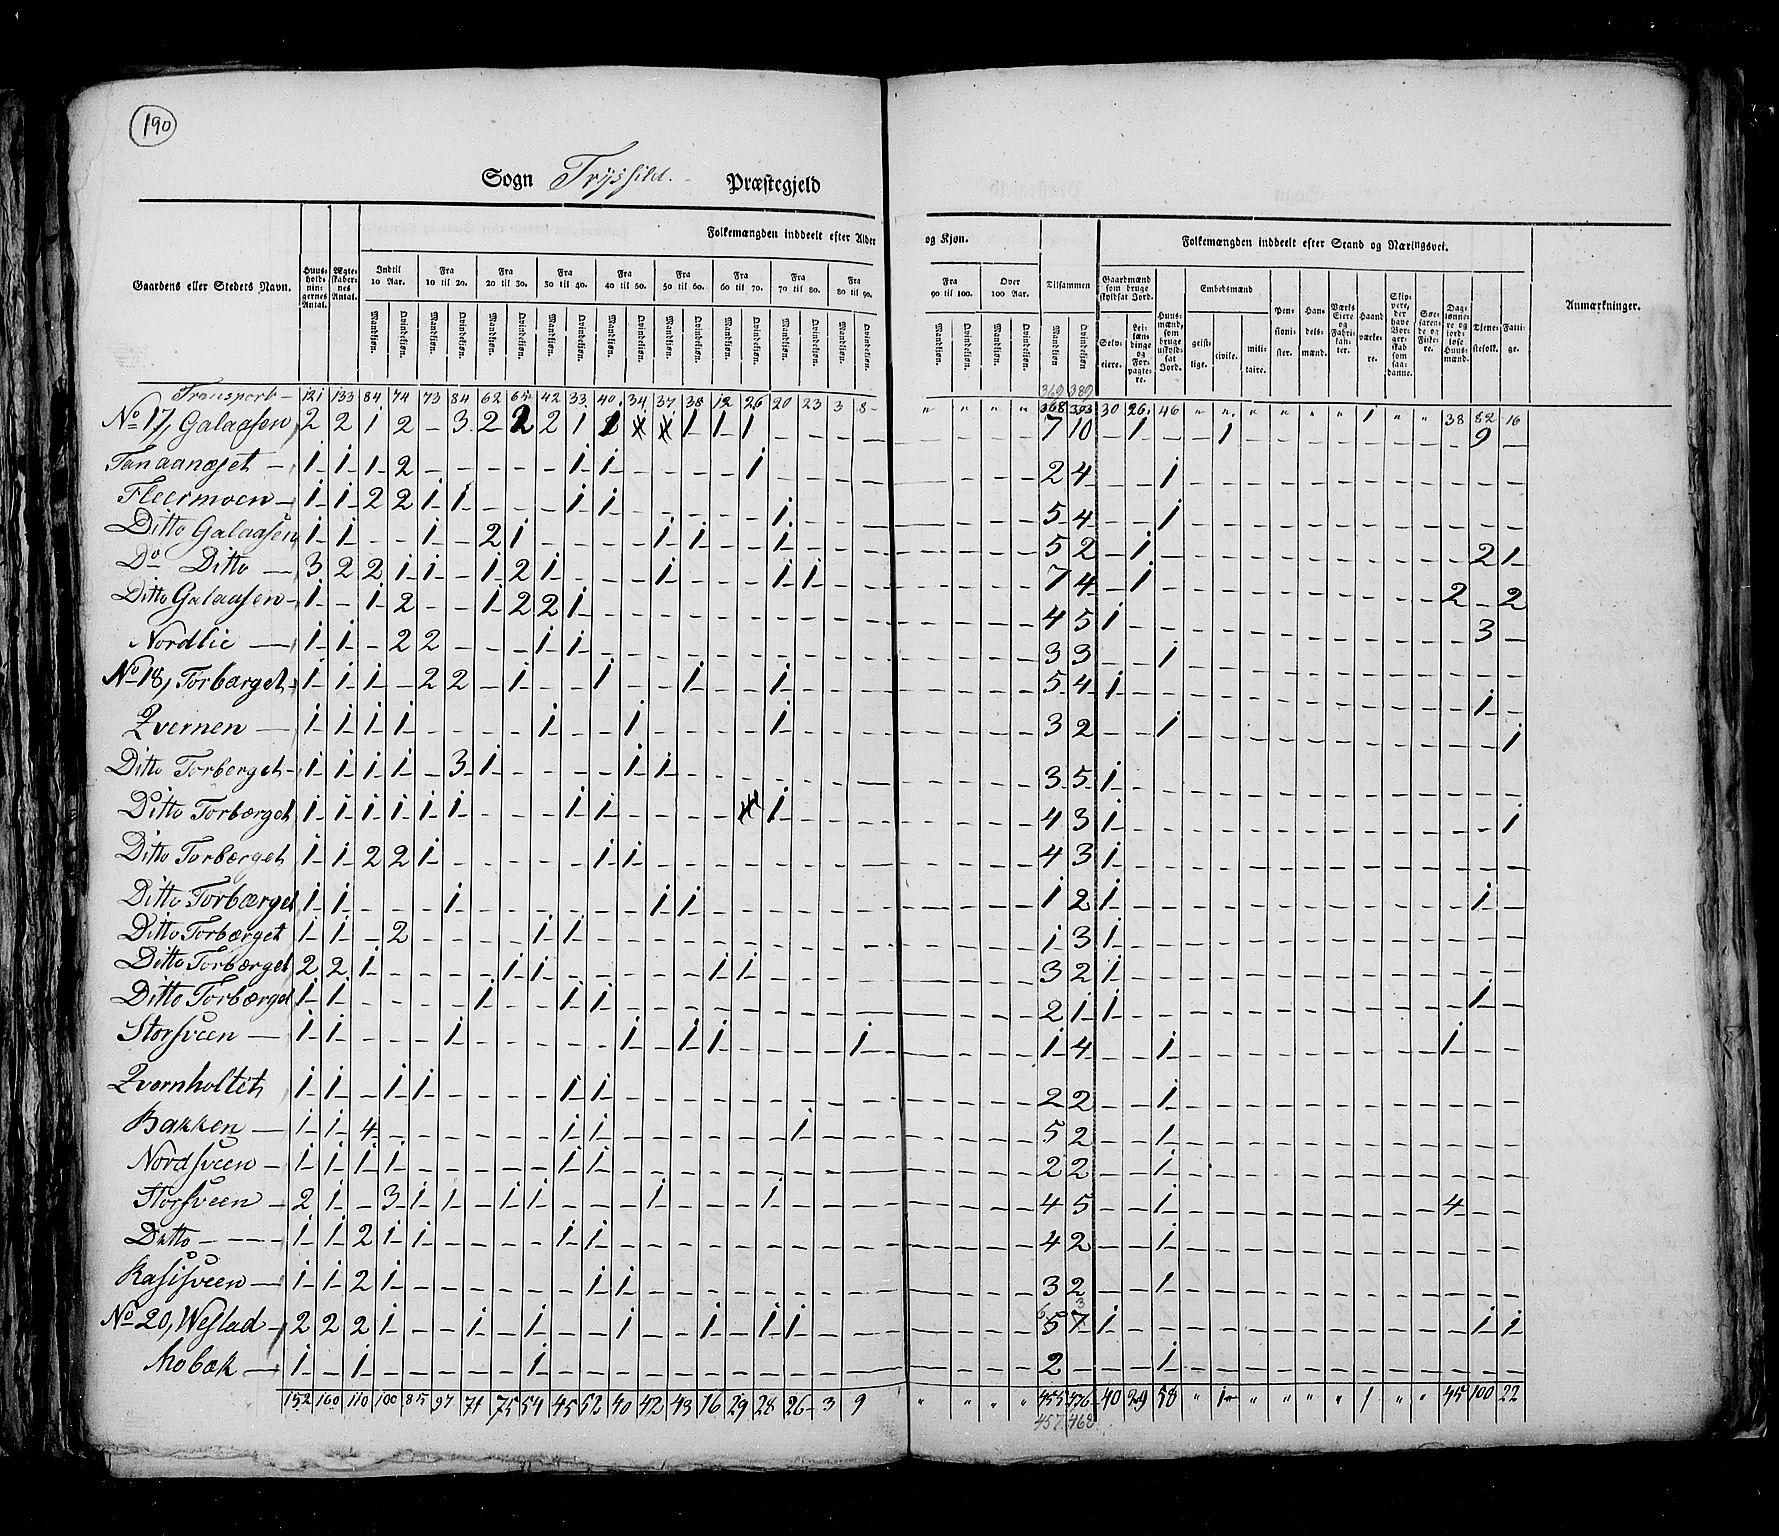 190
Sogn Trysild. Præstegjeld
Folkemængden inddeelt efter Alder og Kjøn.
Folkemængden inddeelt efter Stand og Næringsvei.
Gaardens eller Stedets Navn.
Huusholdningernes Antal.
Ægteskabernes Antal.
Indtil 10 Aar.
Fra 10 til 20.
Fra 20 til 30.
Fra 30 til 40.
Fra 40 til 50.
Fra 50 til 60.
Fra 60 til 70.
Fra 70 til 80.
Fra 80 til 90.
Fra 90 til 100.
Over 100 Aar.
Tilsammen
Gaardmænd som bruge skyldsat Jord.
Huusmænd, som bruge uskyldsat Jord.
Embedsmænd
Pensionister.
Handelsmænd.
Værks Eiere og Fabrikanter.
Haandværkere.
Skippere, der have Borgerskab som saadanne.
Søefarende og Fiskere.
Daglønnere og jordløse Huusmænd.
Tjenestefolk.
Fattige.
Anmærkninger.
Mandkjøn. Qvindekjøn. Mandkjøn. Qvindekjøn. Mandkjøn. Qvindekjøn. Mandkjøn. Qvindekjøn. Mandkjøn. Qvindekjøn. Mandkjøn. Qvindekjøn. Mandkjøn. Qvindekjøn. Mandkjøn. Qvindekjøn. Mandkjøn. Qvindekjøn. Mandkjøn. Qvindekjøn. Mandkjøn. Qvindekjøn. Mandkjøn Qvindekjøn.
Selveiere. Leilændinge og Forpagtere. geistlige. civile. militaire.
369 389
Transport 121 133 84 74 73 84 62 65 42 33 40 34 37 38 12 26 20 23 3 8 " " " " 368 393 30 26 46 " " " " " " 1 " " 38 82 16
No 17, Galaasen 2 2 1 2 - 3 2 2 2 1 1 1 1 1 7 10 - 1 - - 1 9
Tanaanæset - 1 1 1 2 - - - - - 1 1 - - - - 1 2 4 - - 1
Fleermoen - 1 1 2 2 1 1 - - - 1 1 - - - - - 1 5 4 - - 1
Ditto Galaasen 1 1 - - 1 - 2 1 - - - - 1 1 - - 1 5 2 - 1 2 1
Do Ditto - 3 2 2 1 1 - 1 2 1 - - - 1 - - - 1 1 7 4 - 1 2 - 2
Ditto Galaasen 1 - 1 2 - - 1 2 2 1 4 5 1 3
Nordlie - 1 1 - 2 2 - - - 1 1 3 3 - - 1
No 18, Torbærget 1 1 1 - 2 2 - 1 - - 1 - - 1 - - 1 5 4 1 1
Qvernen - 1 1 1 1 - - - - 1 - - 1 - - - - 1 3 2 - - 1 1
Ditto Torberget 1 1 1 1 - 3 1 - - - - 1 1 3 5 1
Ditto Torbærget 1 1 1 1 1 1 - - - 1 1 - - - - 1 4 3 1 1
Ditto Torbærget 1 1 2 2 1 - - - - - 1 1 4 3 1
Ditto Torbærget 1 1 - - - 1 - - - - - - 1 1 1 2 1 1
Ditto Torbærget 1 1 - 2 - - - - 1 1 1 3 1
Ditto Torbærget 2 2 1 - - - - 1 1 - - - - - 1 1 3 2 1
Ditto Torbærget 1 1 - - - - 1 - - 1 1 2 1 1 1
Storsveen - 1 1 - - - 1 - - - - - 1 - 1 1 - - - - 1 1 4 - - 1 1
Qvernholtet 1 1 - 1 1 - - - - 1 1 2 2 - - 1
Bakken - 1 1 4 - - - - - - 1 1 - - - - - - 1 5 2 - - 1
Nordsveen - 1 1 1 1 - - - - - 1 1 2 2 - - 1
Storsveen - 2 1 - 3 1 1 - 1 1 - - - 1 - - - 1 4 5 - - 1 4
Ditto - - - - 1 1 2 1 1 - - - - 1 1 4 2 - - 1
Rasisveen - 1 1 2 1 - - - - - - 1 1 3 2 - - 1
6 3
No 20, Weslad - 2 2 2 1 - - 1 - 1 - - 1 - - 1 - 1 1 5 7 1 1 1
Mobæk - 1 - 1 - - - - - 1 2 - - - 1
152 160 110 100 85 97 71 75 54 45 52 40 42 43 16 29 28 26 3 9 " " " " 455 476 40 29 58 " 1 " " " " 1 " " 45 100 22
457 468